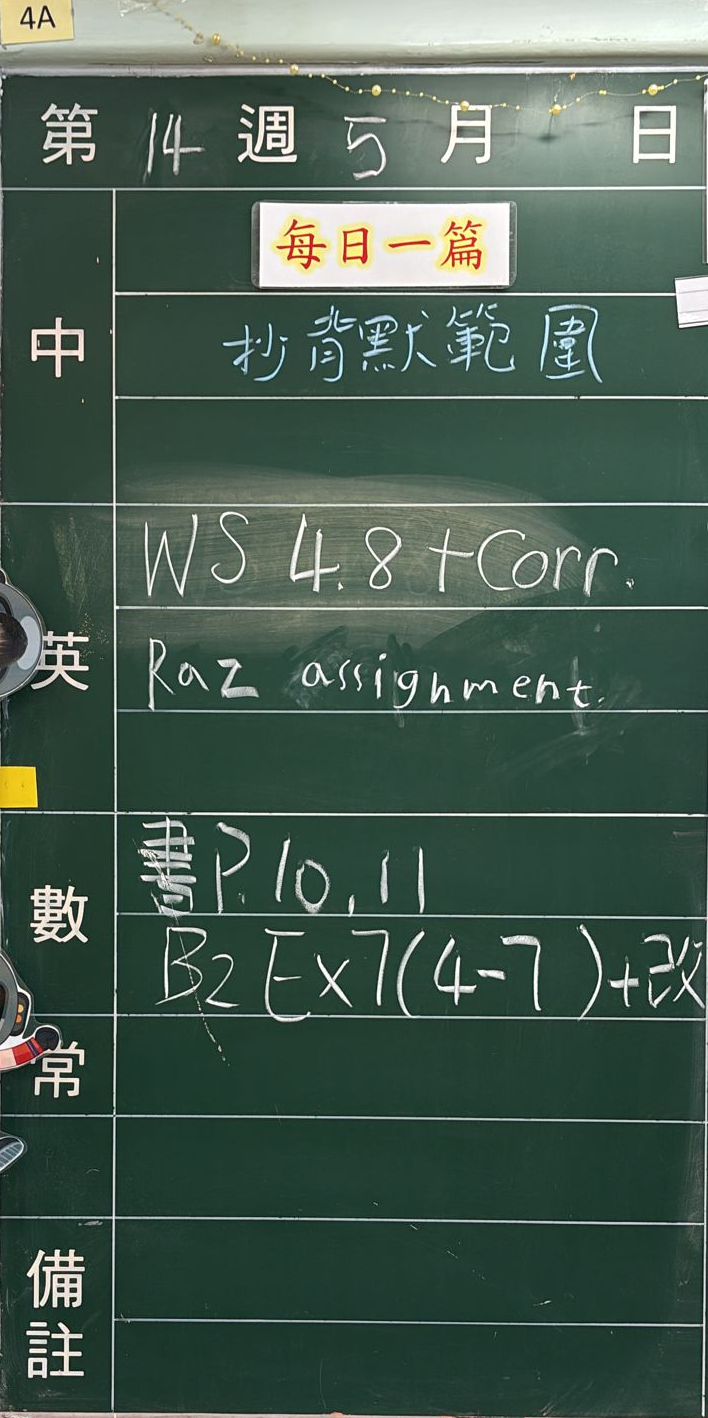 4A
第 14 週 5 月 日
每日一篇
中
抄背默範圍
WS 4.8 + Corr.
英
Raz assignment.
數
書P.10,11
B2 Ex7(4-7)+改
常
備註